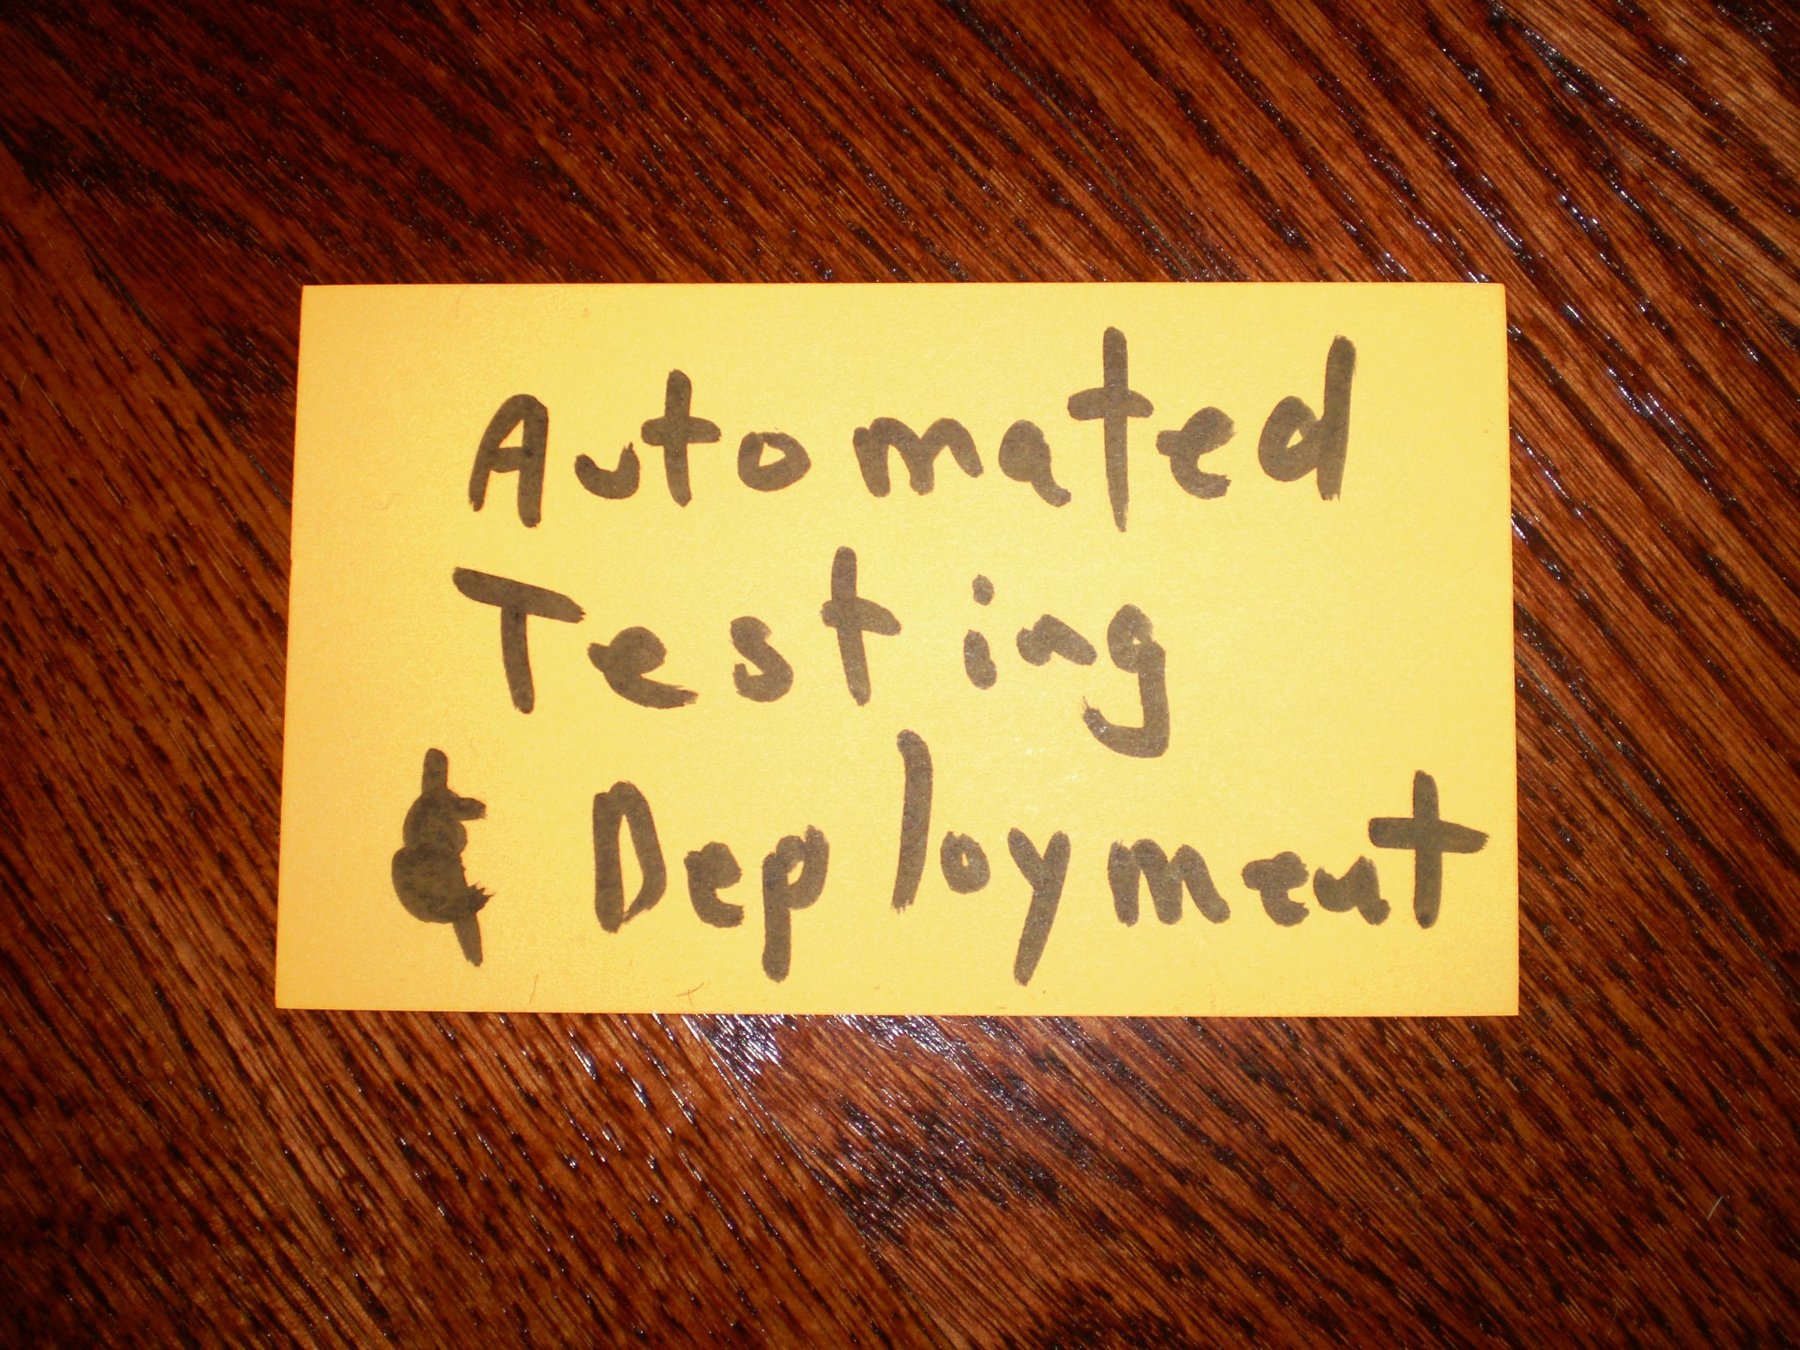 Automated
Testing
& Deployment